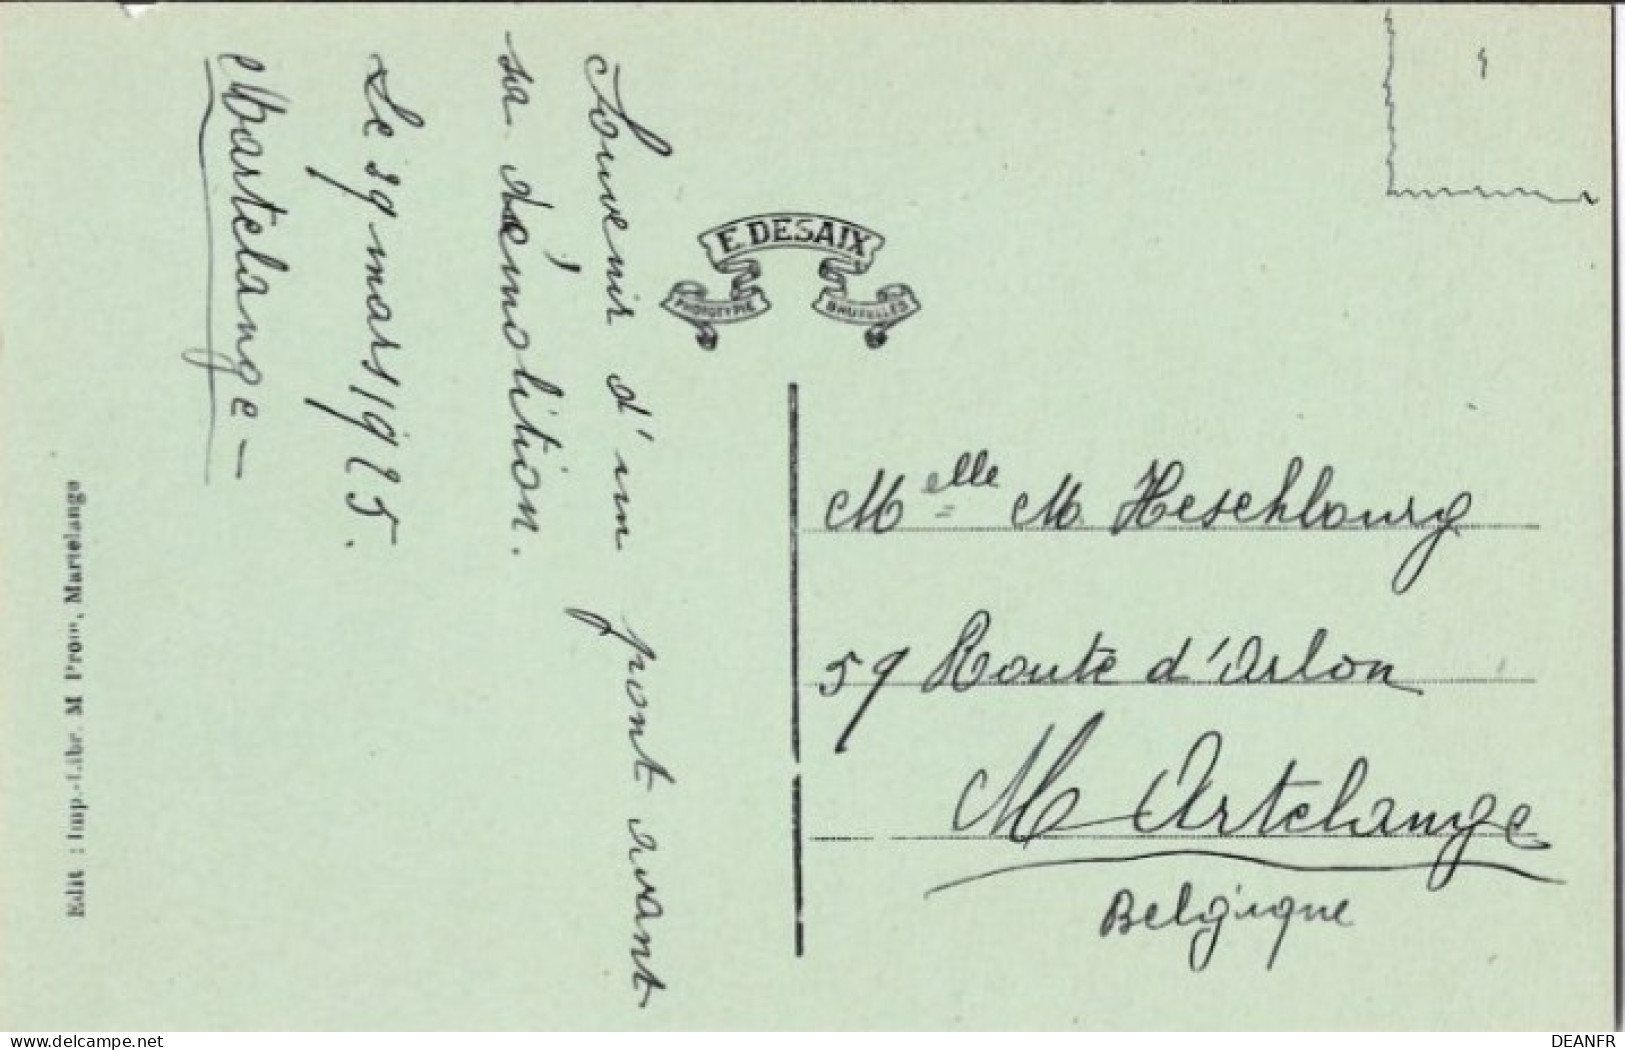 Souvenir d'un pont avant
sa démolition.
Le 29 mars 1925.
Martelange -
E. DESAIX
PHOTOTYPIE BRUXELLES
Melle M. Heschbourg
59 Route d'Arlon
MArtelange
Belgique
Edit : Imp.-Libr. M Martelange
www.delcampe.net
DEANFR